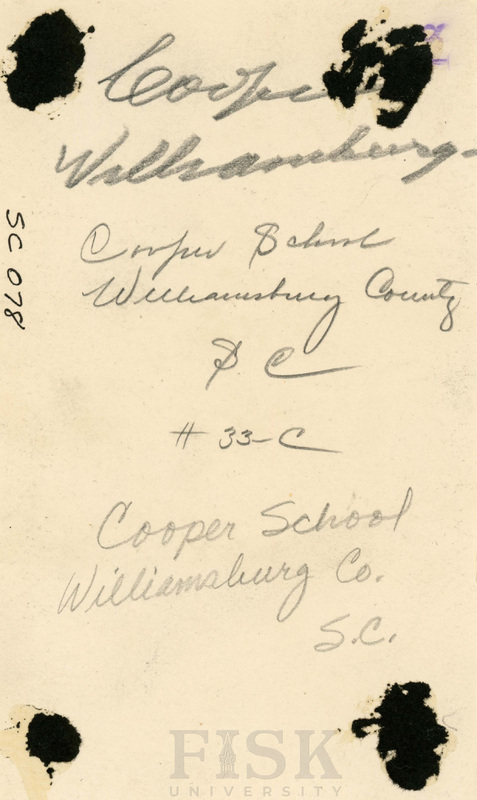 Cooper
Williamsburg
Cooper School
Williamsburg County
S C
# 33-C
Cooper School
Williamsburg Co.
S.C.
SC 078
FISK
UNIVERSITY